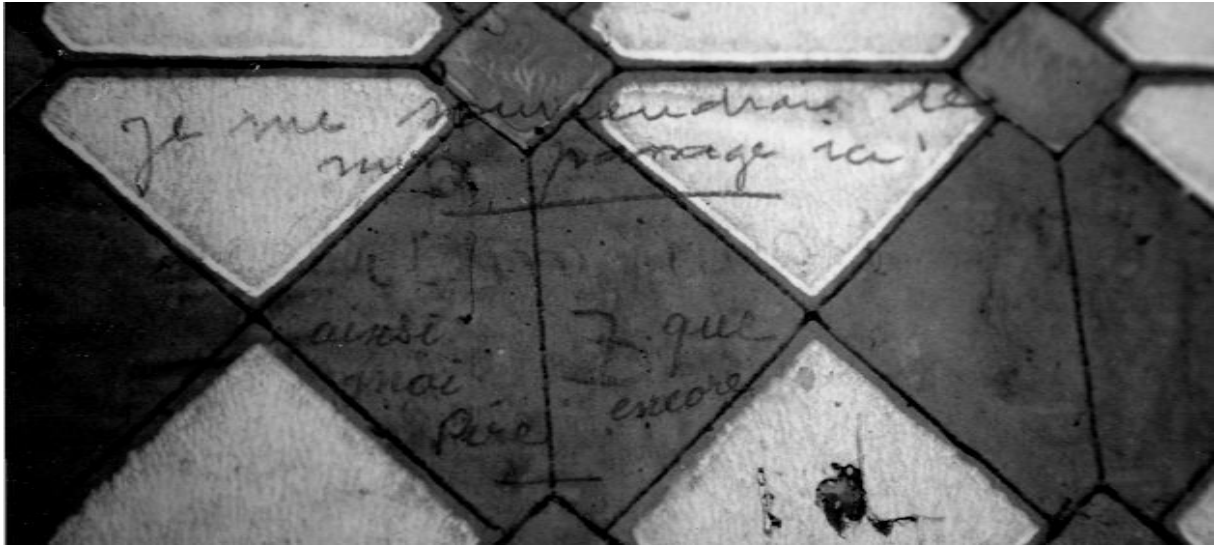 je me souviendrais de
mon passage ici
ainsi que
moi encore
Pire